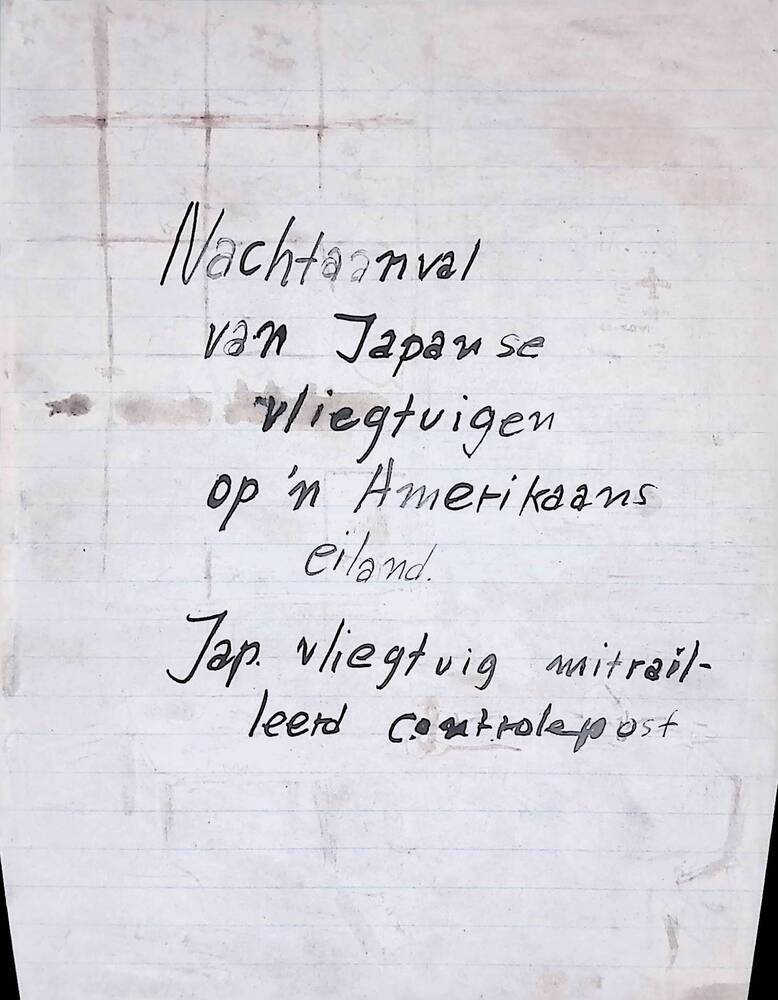 Nachtaanval
van Japanse
vliegtuigen
op 'n Amerikaans
eiland.
Jap. vliegtuig mitrail-
leerd controlepost